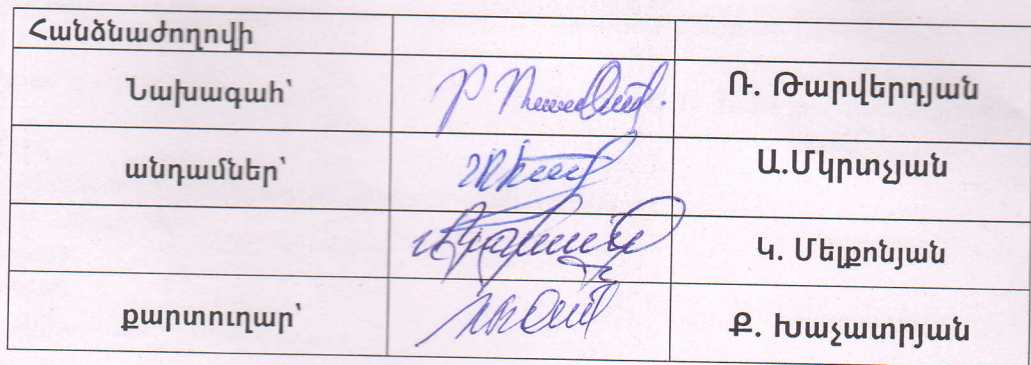 Հանձնաժողովի
Նախագահ՝ Ռ. Թարվերդյան
անդամներ՝ Ա.Մկրտչյան
Կ. Մելքոնյան
քարտուղար՝ Ք. Խաչատրյան